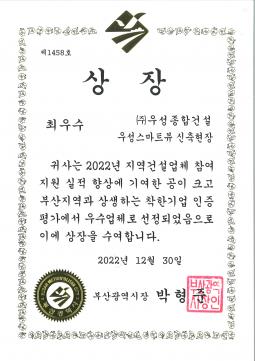 제1458호
상 장
최우수
(주)우성종합건설
우성스마트뷰 신축현장
귀사는 2022년 지역건설업체 참여
지원 실적 향상에 기여한 공이 크고
부산지역과 상생하는 착한기업 인증
평가에서 우수업체로 선정되었음으로
이에 상장을 수여합니다.
2022년 12월 30일
부산광역시장 박형준